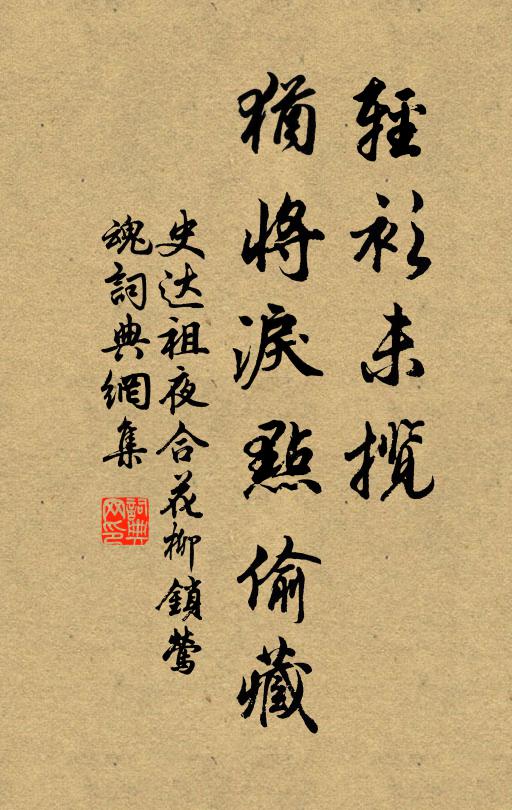 輕衫未攬
猶將淚點偷藏
史达祖夜合花柳鎖鶯
魂詞典網集
詞典
网印